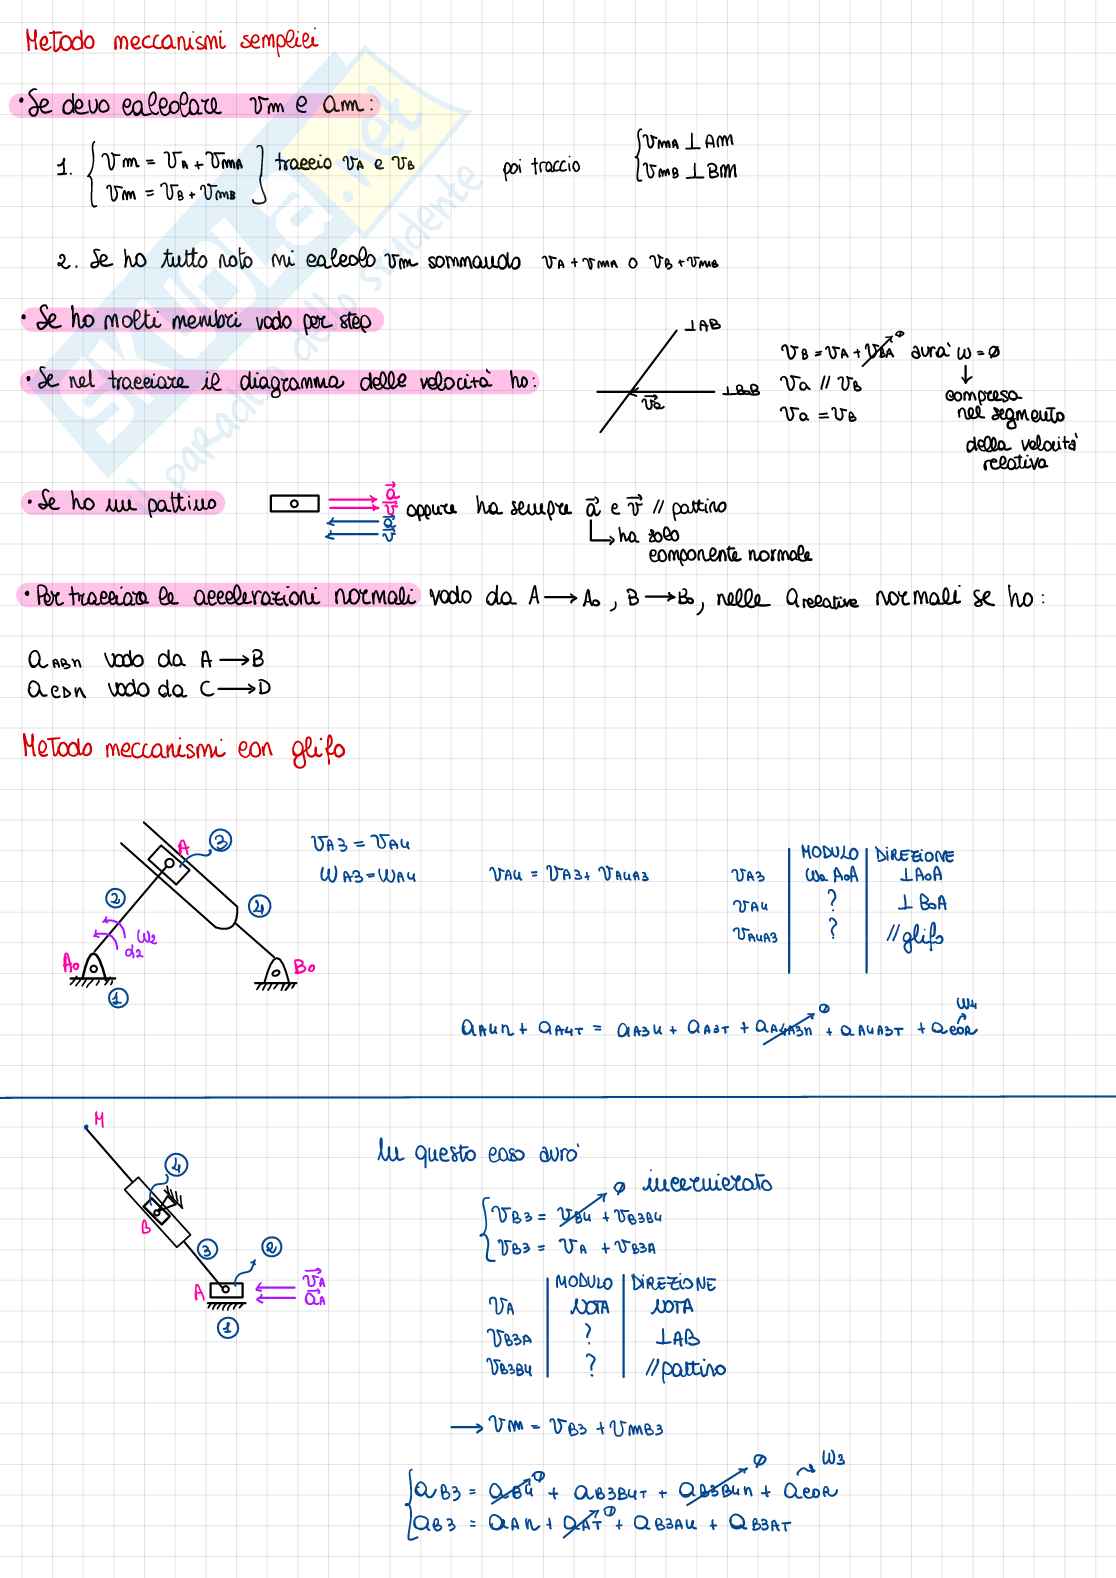 Metodo meccanismi semplici
• Se devo calcolare vm e am:
1. { vm = vA + vmA
vm = vB + vmB } traccio vA e vB poi traccio { vmA ⊥ AM
vmB ⊥ BM
2. Se ho tutto noto mi calcolo vm sommando vA + vmA o vB + vmB
• Se ho molti membri vado per step
• Se nel tracciare il diagramma delle velocità ho:
⊥AB
⊥B0B
va
vB = vA + vBA 0 avrà ω = 0
va // vB
va = vB
compresa
nel segmento
della velocità
relativa
• Se ho un pattino
a v
a v
oppure ha sempre a e v // pattino
ha solo
componente normale
• Per tracciare le accelerazioni normali vado da A → A0, B → B0, nelle a relative normali se ho:
aABn vado da A → B
aCDn vado da C → D
Metodo meccanismi con glifo
A
3
2
4
ω2
α2
A0
B0
1
vA3 = vA4
ωA3 = ωA4
vA4 = vA3 + vA4A3
MODULO DIREZIONE
vA3 ω2 A0A ⊥A0A
vA4 ? ⊥ B0A
vA4A3 ? // glifo
aA4n + aA4T = aA3n + aA3T + aA4A3n 0 + aA4A3T + aCOR ω4
M
4
B
3
2
A
vA
aA
1
In questo caso avrò
{ vB3 = vB4 0 + vB3B4 incernierato
vB3 = vA + vB3A
MODULO DIREZIONE
vA NOTA NOTA
vB3A ? ⊥AB
vB3B4 ? // pattino
→ vm = vB3 + vmB3
{ aB3 = aB4 0 + aB3B4T + aB3B4n 0 + aCOR ω3
aB3 = aAn + aAT 0 + aB3An + aB3AT
SKUOLA.net
il paradiso dello studente